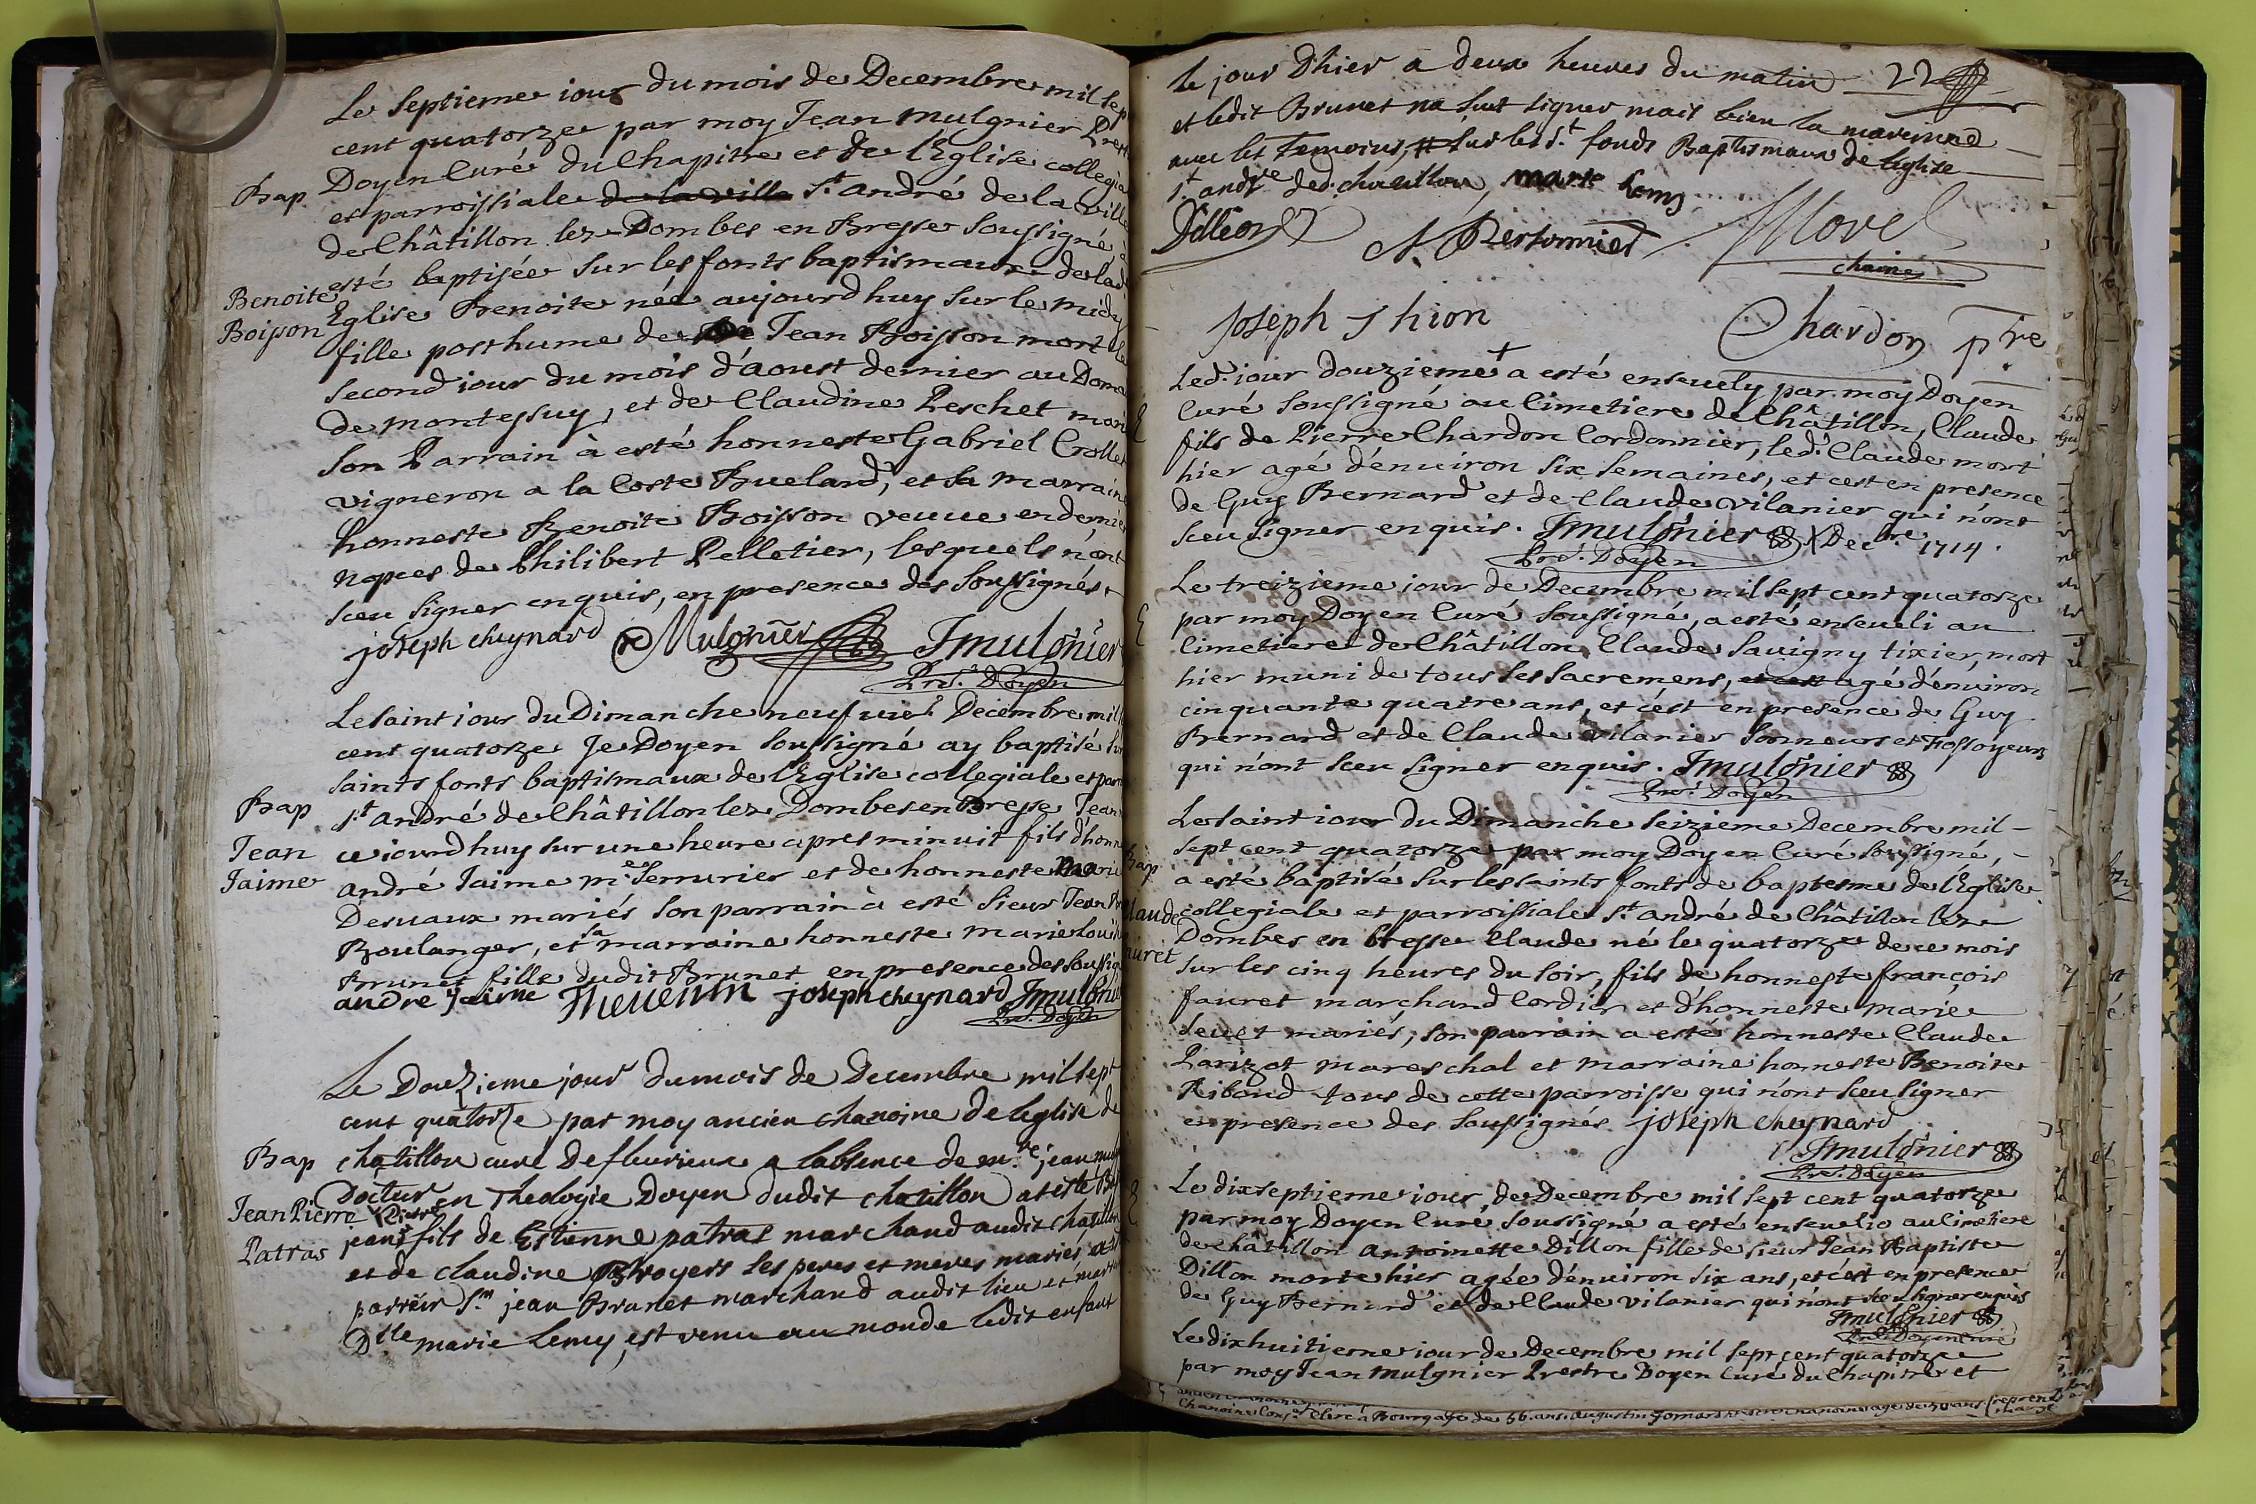 Le Septieme iour du mois de Decembre mil sep
cent quatorze par moy Jean Mulgnier Prest
Doyen Curé du Chapitre et de l'Eglise collegia
Bap
et parroissiale de la ville St andré de la ville
de Châtillon lez Dombes en Bresse soussigné à
esté baptisée sur les fonts baptismaux de lad
Benoite
Boisson
Eglise Benoite née aujourd'huy sur le midy
fille posthume de Jean Boisson mort le
second iour du mois d'aoust dernier au Doma
de montessuy, et de Claudine Peschet marié
son Parrain à esté honneste Gabriel Crollet
vigneron a la Coste Buelard, et sa marraine
honneste Benoite Boisson veuue en dernier
nopces de Philibert Pelletier, lesquels n'ont
sceu signer enquis, en presence des soussignés.
joseph cheynard Mulgnier Jmulgnier
Prd. Doyen
Le saint iour du Dimanche neufuiel Decembre mill
cent quatorze Je Doyen soussigné ay baptisé su
saints fonts baptismaux de l'Eglise collegiale et parr
Bap
St andré de Châtillon lez Dombes en Bresse Jean
Jean
Jaime
ce iourd'huy sur une heure apres minuit fils d'honne
andré Jaime me Serrurier et de honneste marie
Desuaux mariés son parrain à esté Sieur Jean
Boulanger, et sa marraine honneste marie
Brunet fille dudit Brunet en presence des soussig
andre Jaime Theuenin joseph cheynard Jmulgnier
Prd. Doyen
Le Douzieme jour du mois de Decembre mil sept
cent quatorze par moy ancien chanoine de leglise de
Bap
chatillon curé De fleurieux a labsence de mre jean mul
Docteur en Theologie Doyen dudit chatillon a esté
Jean Pierre
Patras
jean Pierre fils de Estienne patras marchand audit chatillon
et de claudine Broyers ses peres et meres mariés
parrein Sr jean Brunet marchand audit lieu et mar
Dlle marie Lemy, est venu au monde ledit enfant
le jour Dhier a deux heures du matin 22
et ledit Brunet na sceut signer mais bien la mareinne
auec les temoins, sur les St fonds Baptismaux de leglise
St andre de d. chatillon, marie Lemy
Dilleon N. Personnier Morel
chaine
Joseph Thion Chardon ptre
Led. iour douzieme + a esté enseuely par moy Doyen
Curé soussigné au Cimetiere de Châtillon, Claude
fils de Pierre Chardon Cordonnier, led. Claude mort
hier agé d'enuiron six semaines, et c'est en presence
de Guy Bernard et de Claude vilanier qui n'ont
sceu signer enquis. Jmulgnier + Decbre 1714.
Prd. Doyen
Le treizieme iour de Decembre mil sept cent quatorze
par moy Doyen Curé soussigné, a esté enseueli au
Cimetiere de Châtillon Claude Sauigny tixier, mort
hier muni de tous les sacremens, et c'est agé d'enuiron
cinquante quatre ans, et c'est en presence de Guy
Bernard et de Claude vilanier sonneurs et Fossoyeurs
qui n'ont sceu signer enquis. Jmulgnier
Prd. Doyen
Le saint iour du Dimanche seizieme Decembre mil
sept cent quatorze par moy Doyen Curé soussigné,
a esté baptisé sur les saints fonts de baptesme de l'Eglise
collegiale et parroissiale St andré de Châtillon lez
Dombes en bresse Claude né le quatorze de ce mois
sur les cinq heures du soir, fils de honneste françois
fauret marchand Cordier et d'honneste marie
seuet mariés, son parrain a esté honneste Claude
Parizot mareschal et marraine honneste Benoite
Riboud tous de cette parroisse qui n'ont sceu signer
en presence des soussignés. joseph cheynard
Jmulgnier
Prd. Doyen
Le dixseptieme iour, de Decembre mil sept cent quatorze
par moy Doyen Curé soussigné a esté enseuelie au Cimetiere
de Châtillon Antoinette Dillon fille de sieur Jean Baptiste
Dillon morte hier agée d'enuiron six ans, et c'est en presence
de Guy Bernard et de Claude vilanier qui n'ont sceu signer enquis
Jmulgnier
Prd. Doyen curé
Le dixhuitieme iour de Decembre mil sept cent quatorze
par moy Jean Mulgnier Prestre Doyen Curé du Chapitre et